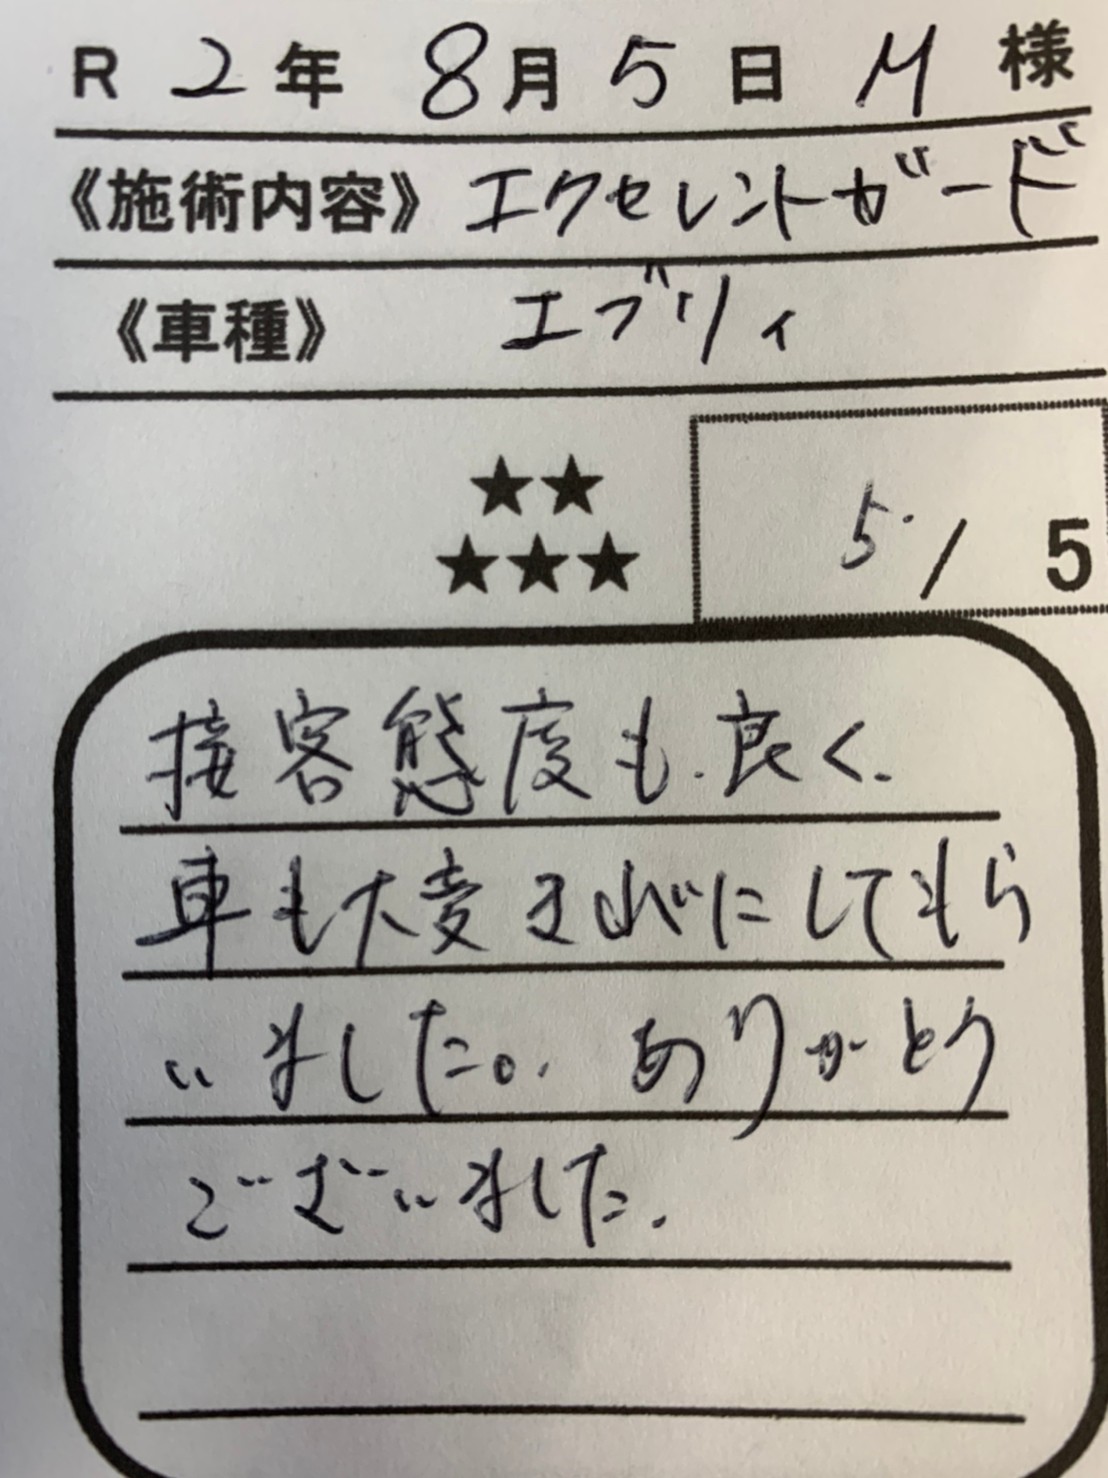 R 2年 8月5日 M 様
《施術内容》エクセレントガード
《車種》 エブリィ
★★
★★★
5 / 5
接客態度も良く、
車も大変きれいにしてもら
いました。ありがとう
ございました。